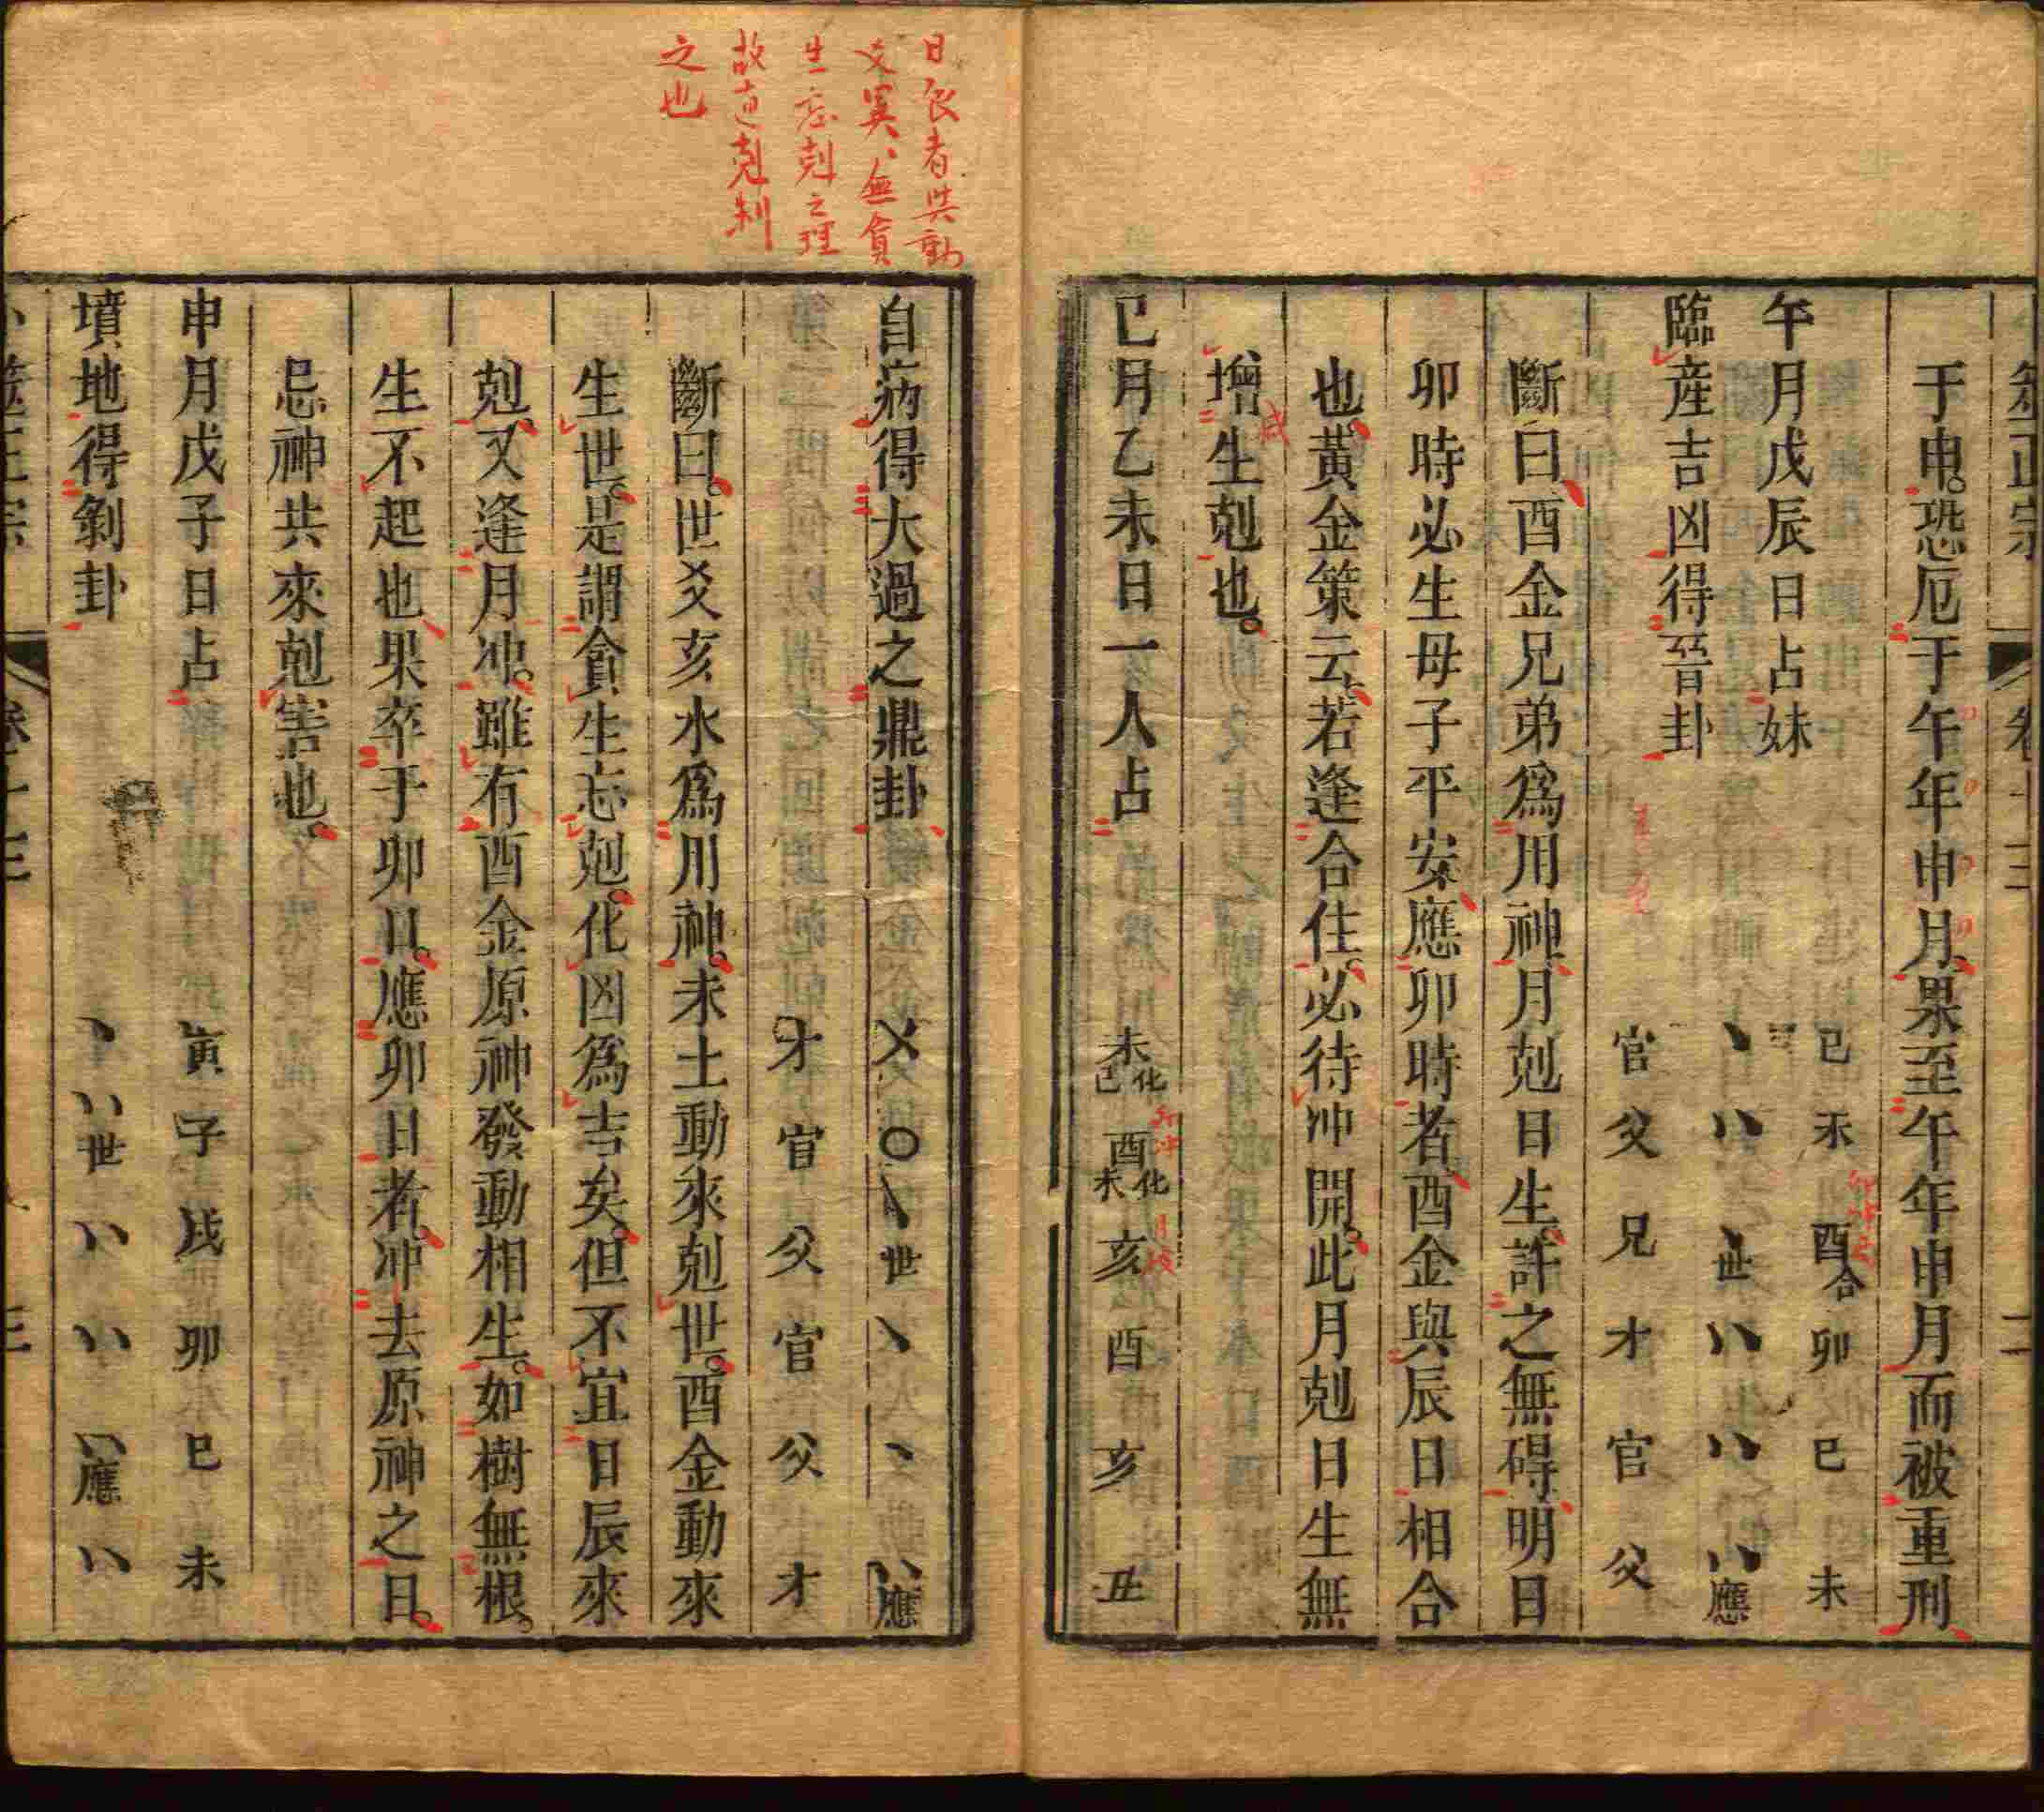 于申恐厄于午年申月果至午年申月而被重刑
午月戊辰日占妹
巳 未 酉合 卯 巳 未
臨産吉凶得晉卦
丶 八 丶世 八 八 八應
官 父 兄 才 官 父
斷曰酉金兄弟爲用神月剋日生許之無碍明日
卯時必生母子平安應卯時者酉金與辰日相合
也黃金策云若逢合住必待冲開此月剋日生無
增生剋也
巳月乙未日一人占
未化巳 酉化未 亥 酉 亥 丑
卯冲
月破
日辰者与動
爻異無貪
生忘剋之理
故直剋制
之也
自病得大過之鼎卦
乂 〇 丶世 丶 丶 八應
才 官 父 官 父 才
斷曰世爻亥水爲用神未土動來剋世酉金動來
生世是謂貪生忘剋化凶爲吉矣但不宜日辰來
剋又逢月冲雖有酉金原神發動相生如樹無根
生不起也果卒于卯日應卯日者冲去原神之日
忌神共來剋害也
申月戊子日占
寅 子 戌 卯 巳 未
墳地得剝卦
丶 八世 八 八 八應 八